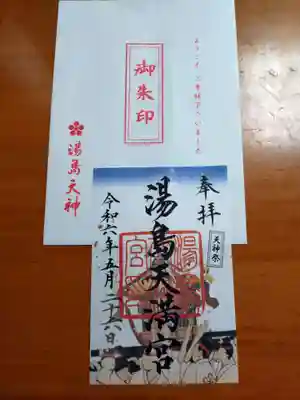 ようこそ
御朱印
湯島天神
奉拝
天神祭
湯島天満宮
令和六年五月二十六日